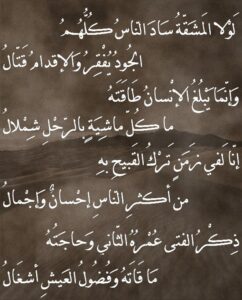 لَوْلَا المَشَقَّةُ سَادَ النَّاسُ كُلُّهُمُ
الجُودُ يُفْقِرُ وَالإقدامُ قَتَّالُ
وَإنَّمَا يَبْلُغُ الإنْسانُ طَاقَتَهُ
ما كُلُّ ماشِيَةٍ بِالرَّحْلِ شِمْلالُ
إنّا لَفي زَمَنٍ تَرْكُ القَبيحِ بِهِ
من أكثَرِ النّاسِ إحْسانٌ وَإجْمالُ
ذِكْرُ الفتى عُمْرُهُ الثّاني وَحاجَتُهُ
مَا قَاتَهُ وَفُضُولُ العَيشِ أشغَالُ